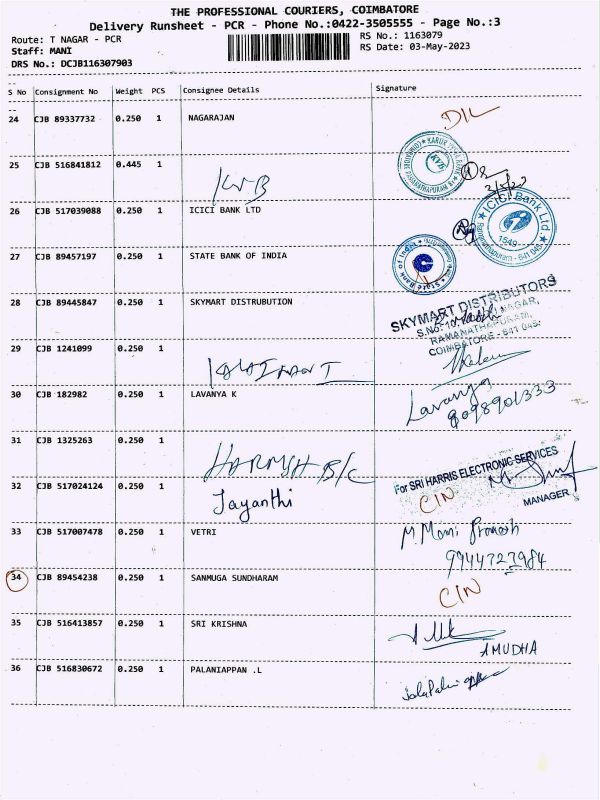 THE PROFESSIONAL COURIERS, COIMBATORE
Delivery Runsheet - PCR - Phone No.:0422-3505555 - Page No.:3
Route: T NAGAR - PCR
Staff: MANI
DRS No.: DCJB116307903
RS No.: 1163079
RS Date: 03-May-2023
S No Consignment No Weight PCS Consignee Details Signature
24 CJB 89337732 0.250 1 NAGARAJAN
25 CJB 516841812 0.445 1
KVB
26 CJB 517039088 0.250 1 ICICI BANK LTD
ICICI Bank Ltd
1549
27 CJB 89457197 0.250 1 STATE BANK OF INDIA
State Bank of India
28 CJB 89445847 0.250 1 SKYMART DISTRUBUTION
SKYMART DISTRIBUTORS
RAMANATHAPURAM,
COIMBATORE - 641 045.
29 CJB 1241099 0.250 1
30 CJB 182982 0.250 1 LAVANYA K
Lavanya
8098901333
31 CJB 1325263 0.250 1
HARMSH B/C
For SRI HARRIS ELECTRONIC SERVICES
MANAGER
32 CJB 517024124 0.250 1 Jayanthi
CIN
33 CJB 517007478 0.250 1 VETRI
9944727984
34 CJB 89454238 0.250 1 SANMUGA SUNDHARAM
CIN
35 CJB 516413857 0.250 1 SRI KRISHNA
AMUDHA
36 CJB 516830672 0.250 1 PALANIAPPAN .L